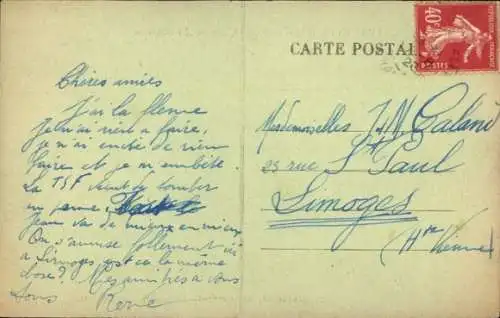 CARTE POSTALE
40c
POSTES
Chères amies
J'ai la flemme
Je n'ai rien a faire,
je n'ai envie de rien
faire et je m'embête.
La TSF vient de tomber
en panne,
Jean va de mieux en mieux
On s'amuse follement ici
a Limoges est ce la même
chose? Mes amitiés a vous
tous
René
Mesdemoiselles J. N. Galand
23 rue St Paul
Limoges
(Hte Vienne)